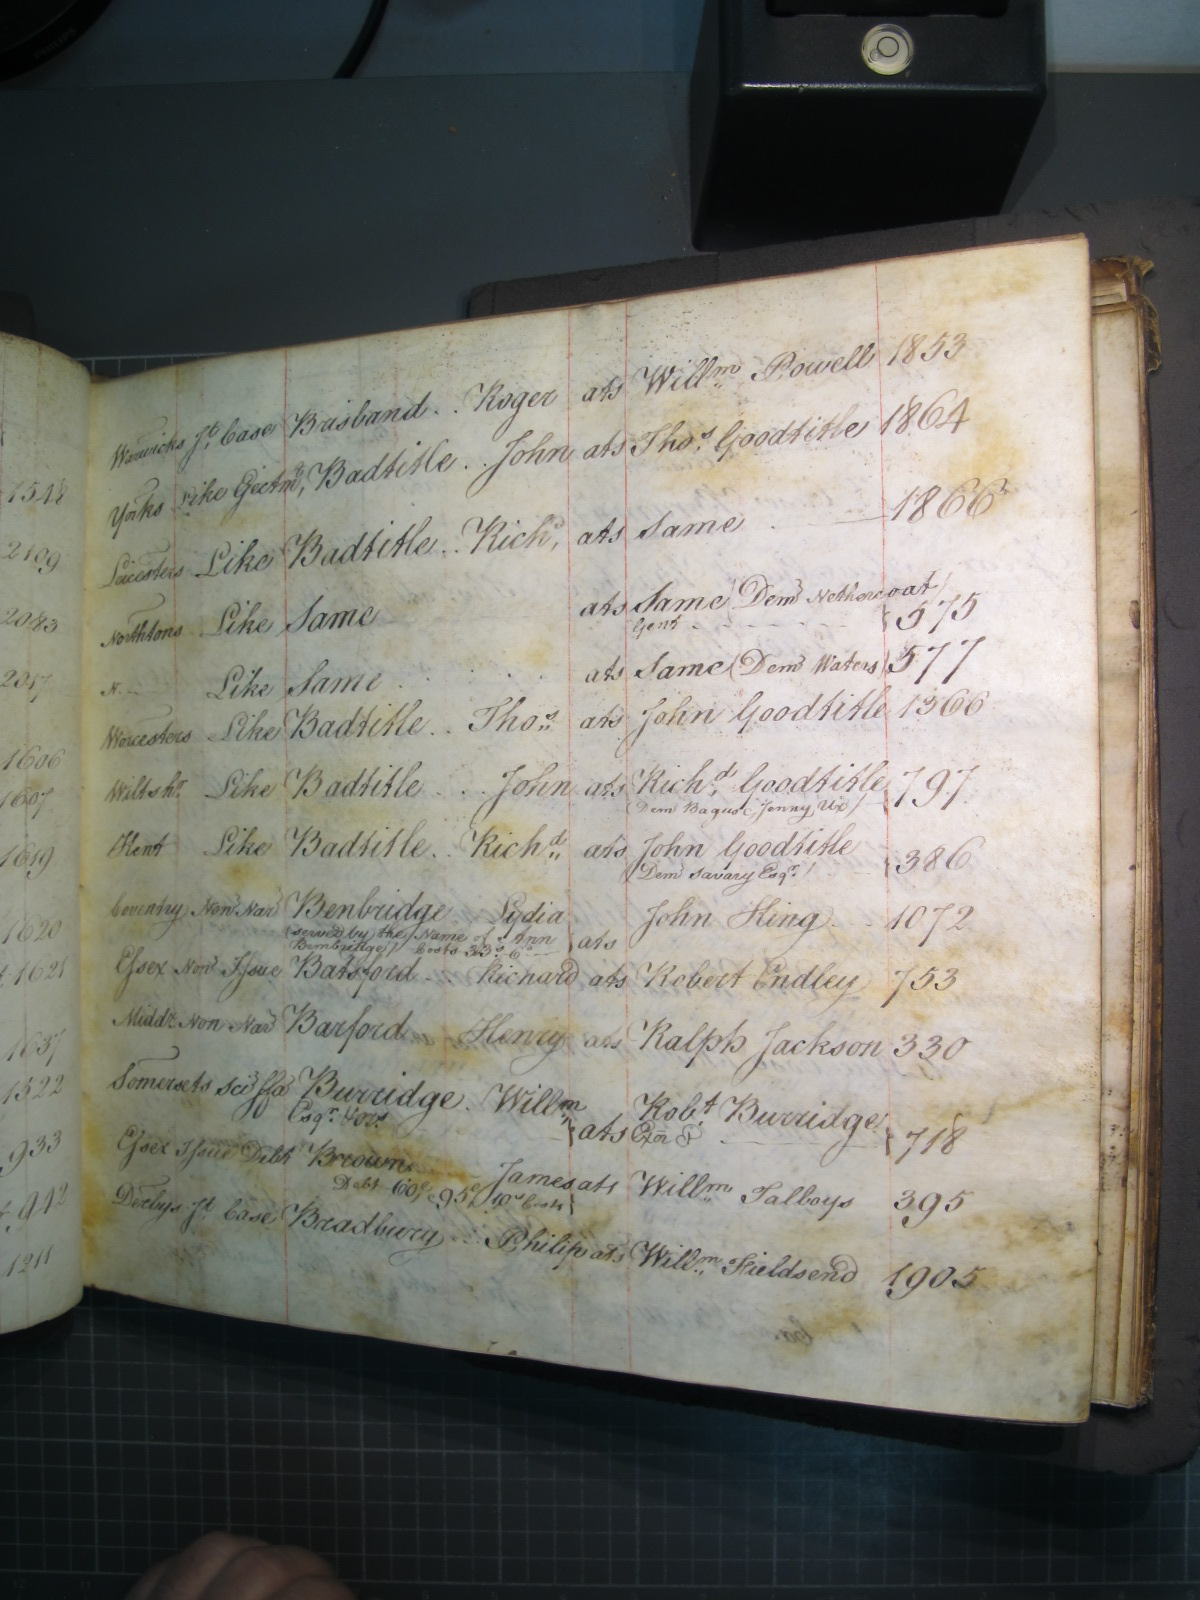 Warwicks Jt. Case Brisband .. Roger ats Willm Powell 1853
Yorks Like Ejectmt, Badtitle .. John ats Thos. Goodtitle 1864
Leicesters Like Badtitle .. Richd, ats Same - 1866
Northtons Like Same ats Same (Demd Nethercoat)
Gent - - - - 575
N. -- Like Same ats Same (Demd Waters) 577
Worcesters Like Badtitle .. Thos. ats John Goodtitle 1366
Wiltshr Like Badtitle ... John ats Richd. Goodtitle 797
(Demd Bagus & Jenny Ux)
Kent Like Badtitle .. Richd. ats John Goodtitle
(Demd Savary Esqr.) 386
Coventry Non Nar Benbridge Lydia John King - 1072
(served by the Name of Ann
Bembridge) Costs 33s. 6 ats
Essex Non Issue Batsford .. Richard ats Robert Endley 753
Middx Non Nar Barford Henry ats Ralph Jackson 330
Somersets Sci ffa Burridge . Willm Robt. Burridge
Esqr. ats 718
Essex Issue Debt Brown James ats Willm Talboys 395
Debt 60£, 95£ 10s Costs
Derbys Jt. Case Bradbury ... Philip ats Willm Fieldsend 1905
1548
2109
2083
2017
1606
1607
1619
1620
1621
1637
1522
933
942
1211